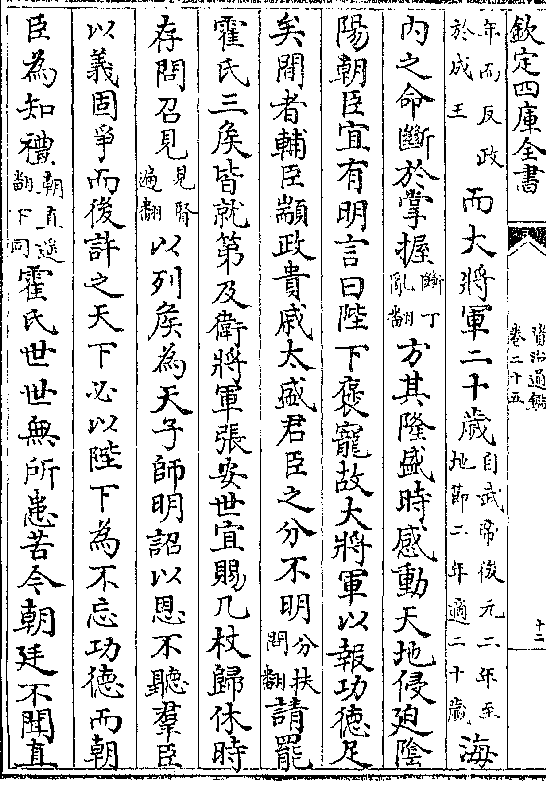 欽定四庫全書
資治通鑑
卷二十五
十二
年而反政
於成王
而大將軍二十歲自武帝後元二年至
地節二年適二十歲
海
內之命斷於掌握斷丁
亂翻
方其隆盛時感動天地侵迫陰
陽朝臣宜有明言曰陛下襃寵故大將軍以報功德足
矣間者輔臣顓政貴戚太盛君臣之分不明分扶
問翻
請罷
霍氏三矦皆就第及衛將軍張安世宜賜几杖歸休時
存問召見見賢
遍翻
以列矦為天子師明詔以恩不聽羣臣
以義固爭而後許之天下必以陛下為不忘功德而朝
臣為知禮朝直遥
翻下同
霍氏世世無所患苦今朝廷不聞直